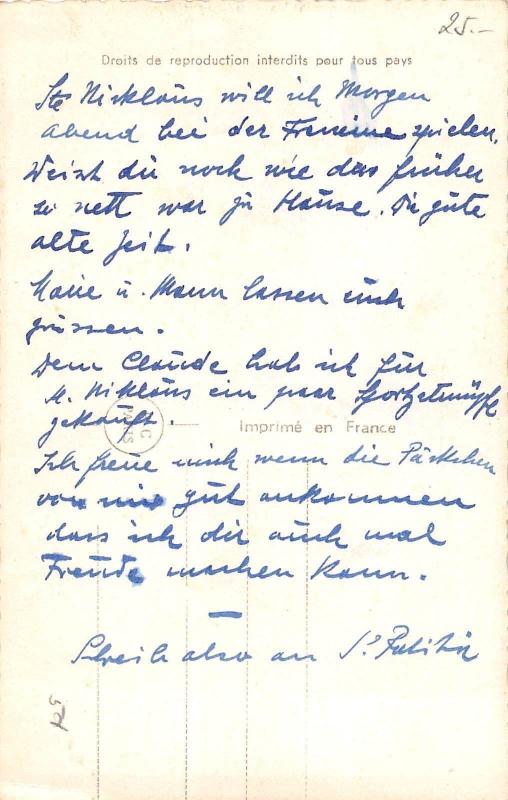 25.-
Droits de reproduction interdits pour tous pays
Ste Nicklaus will ich Morgen
abend bei der spielen.
Weist du noch wie das früher
so nett war zu Hause. Die gute
alte Zeit.
u. Mann lassen euch
grüssen.
Dem Claude hab ich für
st. Niklaus ein paar Sportstrümpfe
gekauft.
Imprimé en France
Ich freue mich wenn die Päckchen
von mir gut ankommen
dass ich dir auch mal
Freude machen kann.
—
Schreib also an